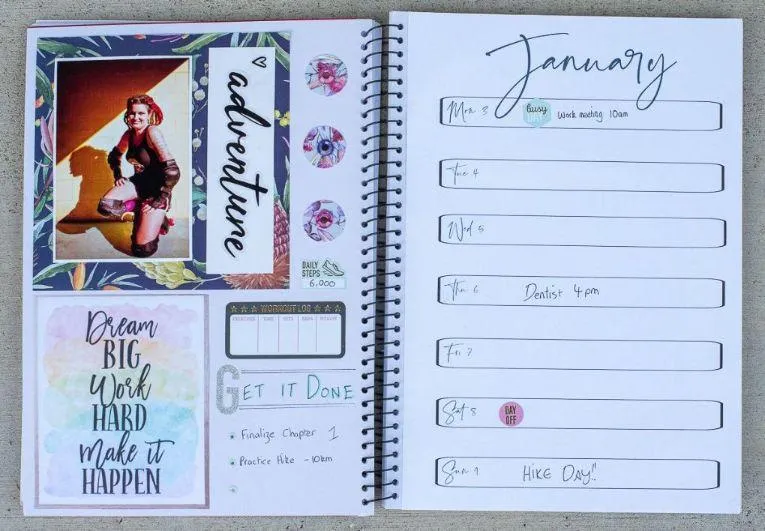 adventure
DAILY
STEPS
6,000
Dream
BIG
Work
HARD
make it
HAPPEN
WORKOUT LOG
GET IT DONE
Finalize Chapter 1
Practice Hike - 10km
January
Mon 3 busy DAY Work meeting 10am
Tue 4
Wed 5
Thu 6 Dentist 4pm
Fri 7
Sat 8 DAY OFF
Sun 9 HIKE DAY!!